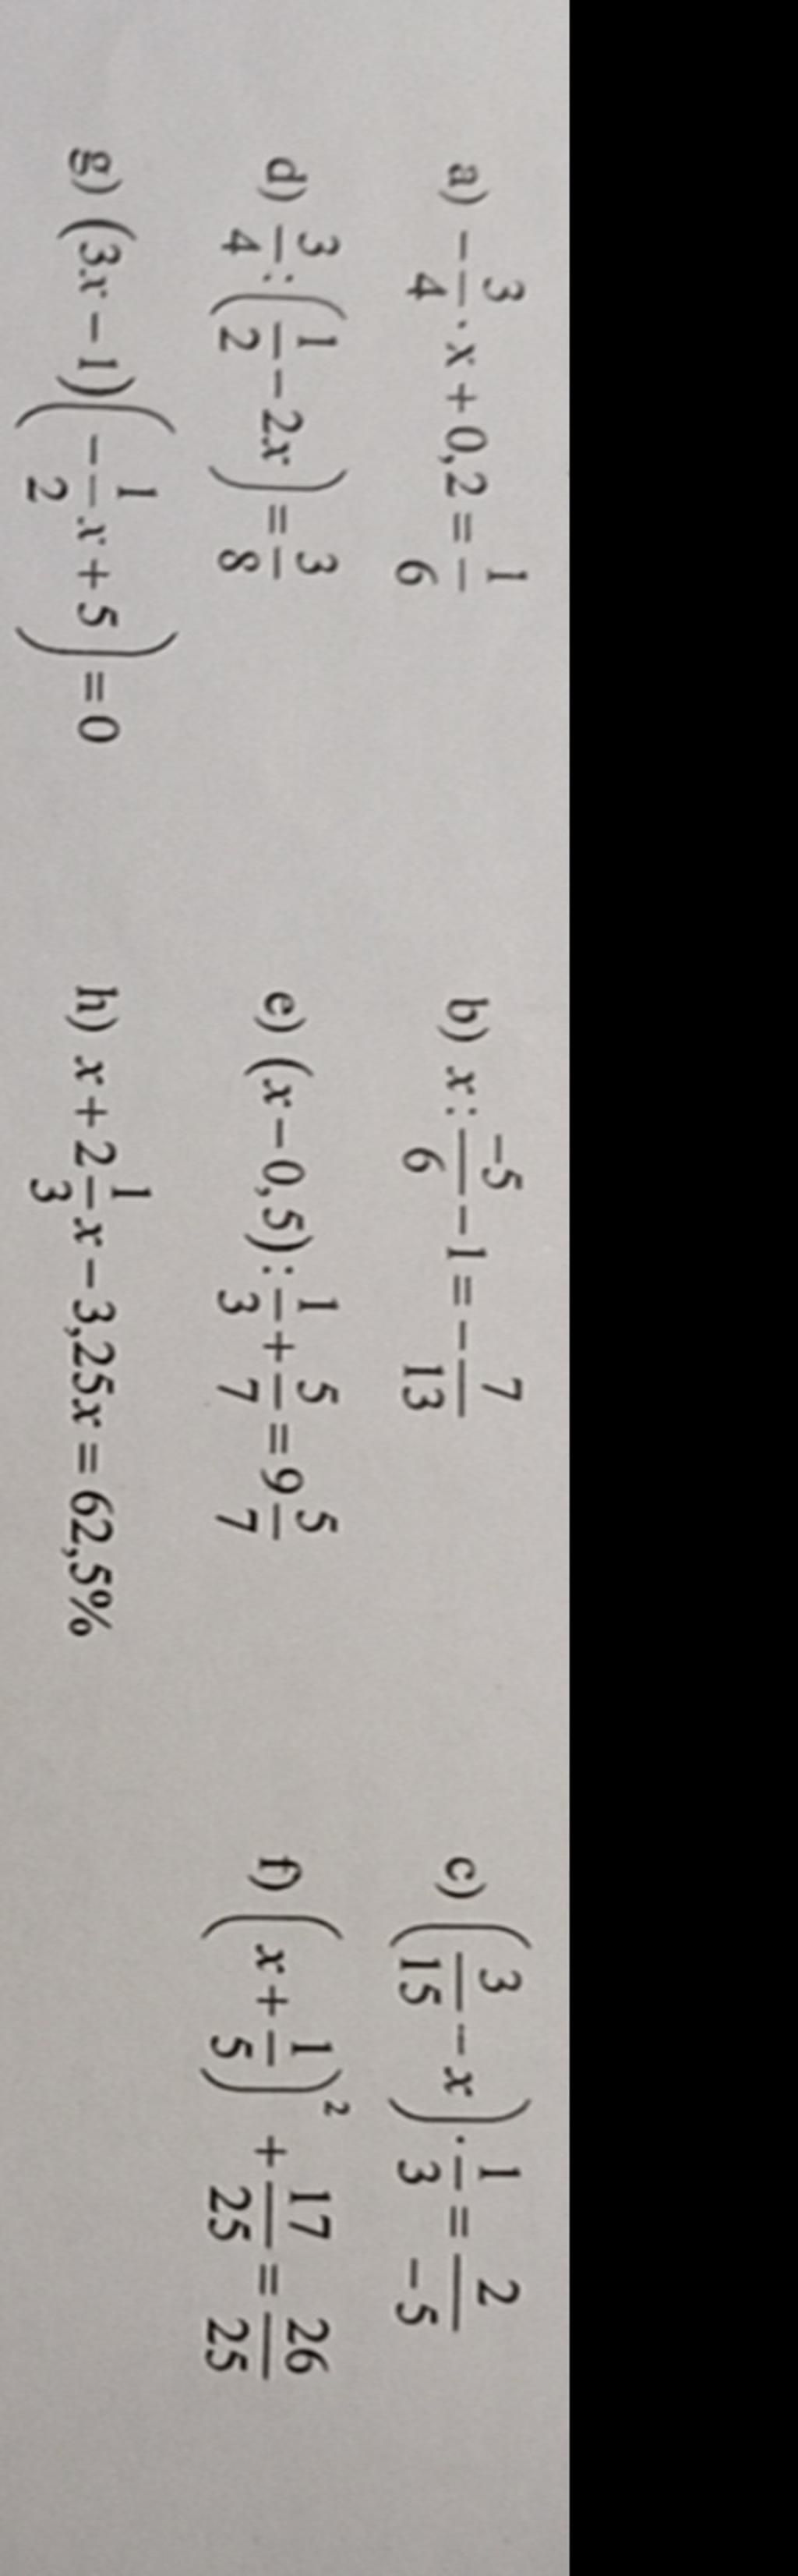 a) $-\frac{3}{4} \cdot x + 0,2 = \frac{1}{6}$ b) $x : \frac{-5}{6} - 1 = -\frac{7}{13}$ c) $\left(\frac{3}{15} - x\right) \cdot \frac{1}{3} = \frac{2}{-5}$
d) $\frac{3}{4} : \left(\frac{1}{2} - 2x\right) = \frac{3}{8}$ e) $(x - 0,5) : \frac{1}{3} + \frac{5}{7} = 9\frac{5}{7}$ f) $\left(x + \frac{1}{5}\right)^2 + \frac{17}{25} = \frac{26}{25}$
g) $(3x - 1)\left(-\frac{1}{2}x + 5\right) = 0$ h) $x + 2\frac{1}{3}x - 3,25x = 62,5\%$